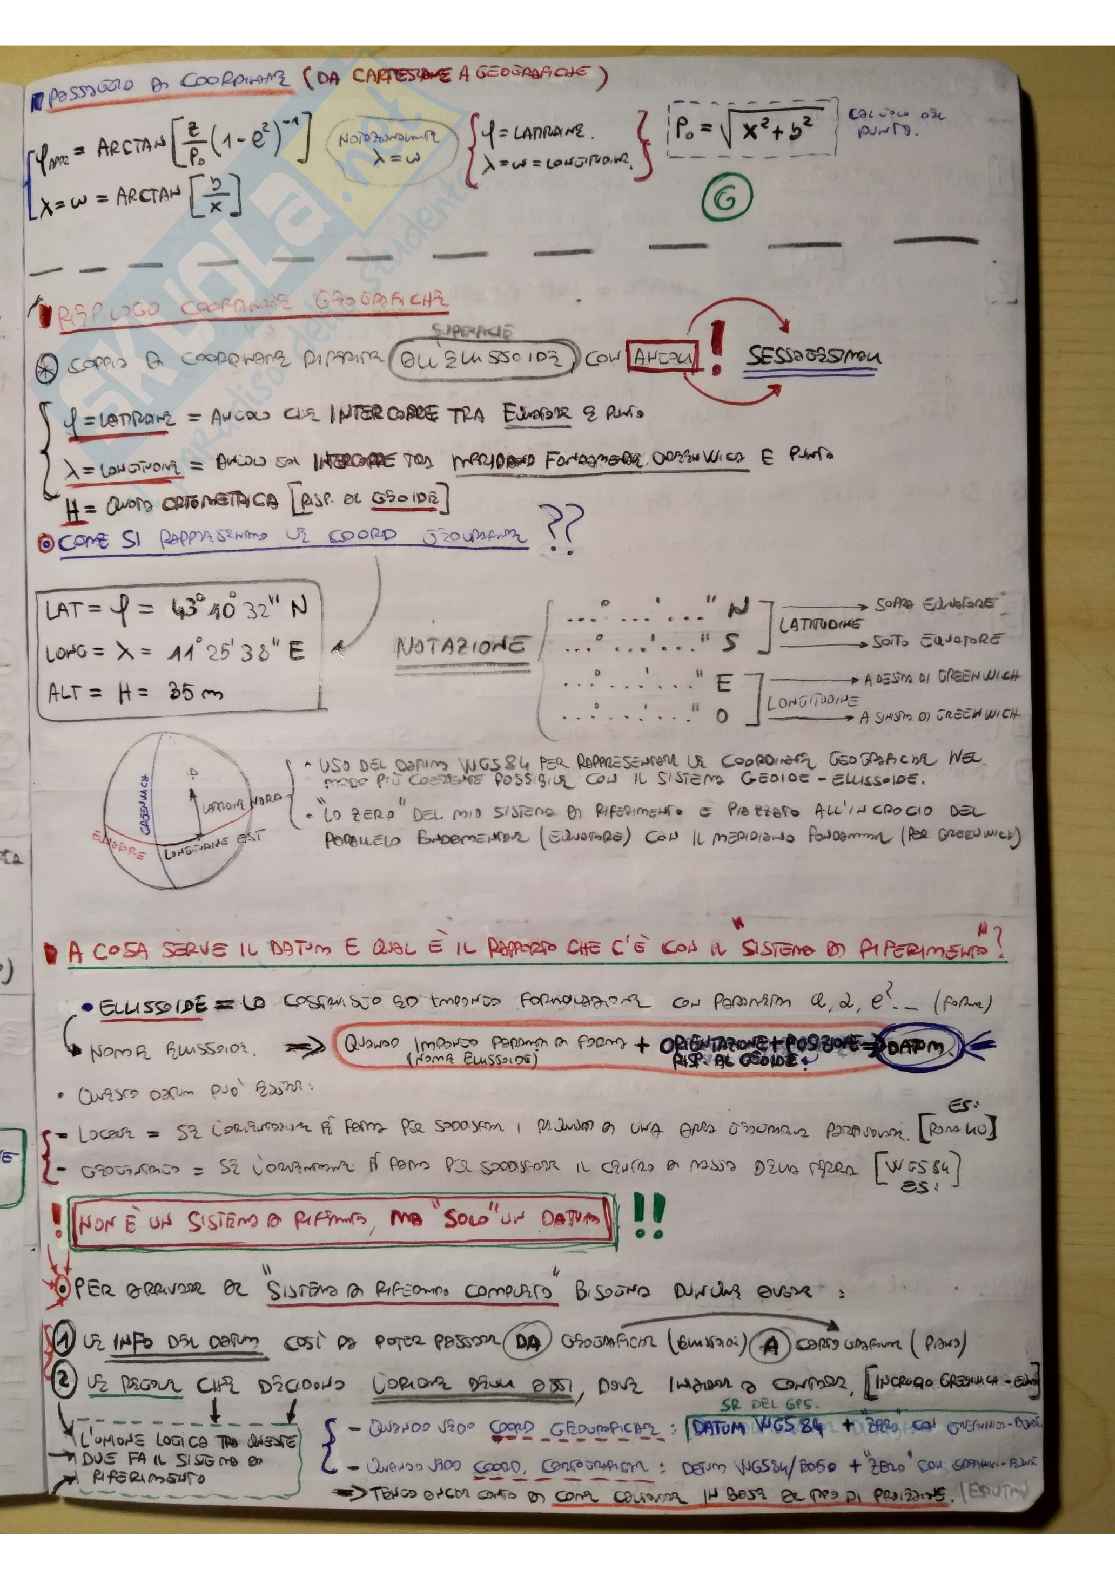 PASSAGGIO DI COORDINATE (DA CARTESIANE A GEOGRAFICHE)
φ = ARCTAN [z/P₀ (1-e²)⁻¹]
λ = ω = ARCTAN [y/x]
NOTAZIONALMENTE λ = ω
φ = LATITUDINE.
λ = ω = LONGITUDINE.
P₀ = √x²+y²
CALCOLO DEL PUNTO.
G
RIEPILOGO COORDINATE GEOGRAFICHE
SUPERFICIE
COPPIA DI COORDINATE RIFERITA ALL'ELLISSOIDE CON ANGOLI ! SESSAGESIMALI
φ = LATITUDINE = ANGOLO CHE INTERCORRE TRA EQUATORE E PUNTO
λ = LONGITUDINE = ANGOLO CHE INTERCORRE TRA MERIDIANO FONDAMENTALE GREENWICH E PUNTO
H = QUOTA ORTOMETRICA [RISP. AL GEOIDE]
COME SI RAPPRESENTANO LE COORD GEOGRAFICHE ??
LAT = φ = 43° 40' 32" N
LONG = λ = 11° 25' 38" E
ALT = H = 35 m
NOTAZIONE
...°...'..." N
...°...'..." S
LATITUDINE
SOPRA EQUATORE
SOTTO EQUATORE
...°...'..." E
...°...'..." O
LONGITUDINE
A DESTRA DI GREENWICH
A SINISTRA DI GREENWICH
GREENWICH
P
LATITUDINE NORD
EQUATORE
LONGITUDINE EST
• USO DEL DATUM WGS84 PER RAPPRESENTARE LE COORDINATE GEOGRAFICHE NEL
MODO PIÙ COERENTE POSSIBILE CON IL SISTEMA GEOIDE - ELLISSOIDE.
• "LO ZERO" DEL MIO SISTEMA DI RIFERIMENTO E PIAZZATO ALL'INCROCIO DEL
PARALLELO FONDAMENTALE (EQUATORE) CON IL MERIDIANO FONDAMENTALE (PER GREENWICH)
A COSA SERVE IL DATUM E QUAL È IL RAPPORTO CHE C'È CON IL "SISTEMA DI RIFERIMENTO"?
• ELLISSOIDE = LO COSTRUISCO ED IMPONGO FORMULAZIONE CON PARAMETRI a, α, e² ... (FORMA)
NOME ELLISSOIDE. ⇒ QUANDO IMPONGO PARAMETRI DI FORMA + ORIENTAZIONE + POSIZIONE ⇒ DATUM
(NOME ELLISSOIDE) RISP. AL GEOIDE:
• QUESTO DATUM PUÒ ESSERE:
ES:
- LOCALE = SE L'ORIENTAZIONE È FATTA PER SODDISFARE I DI UNA AREA GEOGRAFICA PARTICOLARE. [ROMA 40]
- GEOCENTRICO = SE L'ORIENTAZIONE È FATTA PER SODDISFARE IL CENTRO DI MASSA DELLA TERRA [WGS84]
ES:
! NON È UN SISTEMA DI RIFERIMENTO, MA "SOLO" UN DATUM !!
PER ARRIVARE AL "SISTEMA DI RIFERIMENTO COMPLETO" BISOGNA DUNQUE AVERE:
1 LE INFO DEL DATUM COSÌ DA POTER PASSARE DA GEOGRAFICHE (ELLISSOIDI) A CARTOGRAFICHE (PIANO)
2 LE REGOLE CHE DECIDONO L'ORIGINE DEGLI ASSI, DOVE INIZIARE A CONTARE, [INCROCIO GREENWICH - EQUAT]
SR DEL GPS.
L'UNIONE LOGICA TRA QUESTE
DUE FA IL SISTEMA DI
RIFERIMENTO
- QUANDO VEDO COORD GEOGRAFICHE: DATUM WGS84 + "ZERO" CON
- QUANDO VEDO COORD. CARTOGRAFICHE: DATUM WGS84/ED50 + "ZERO" CON
⇒ TENGO ANCHE CONTO DI COME CALCOLARE IN BASE AL TIPO DI PROIEZIONE.